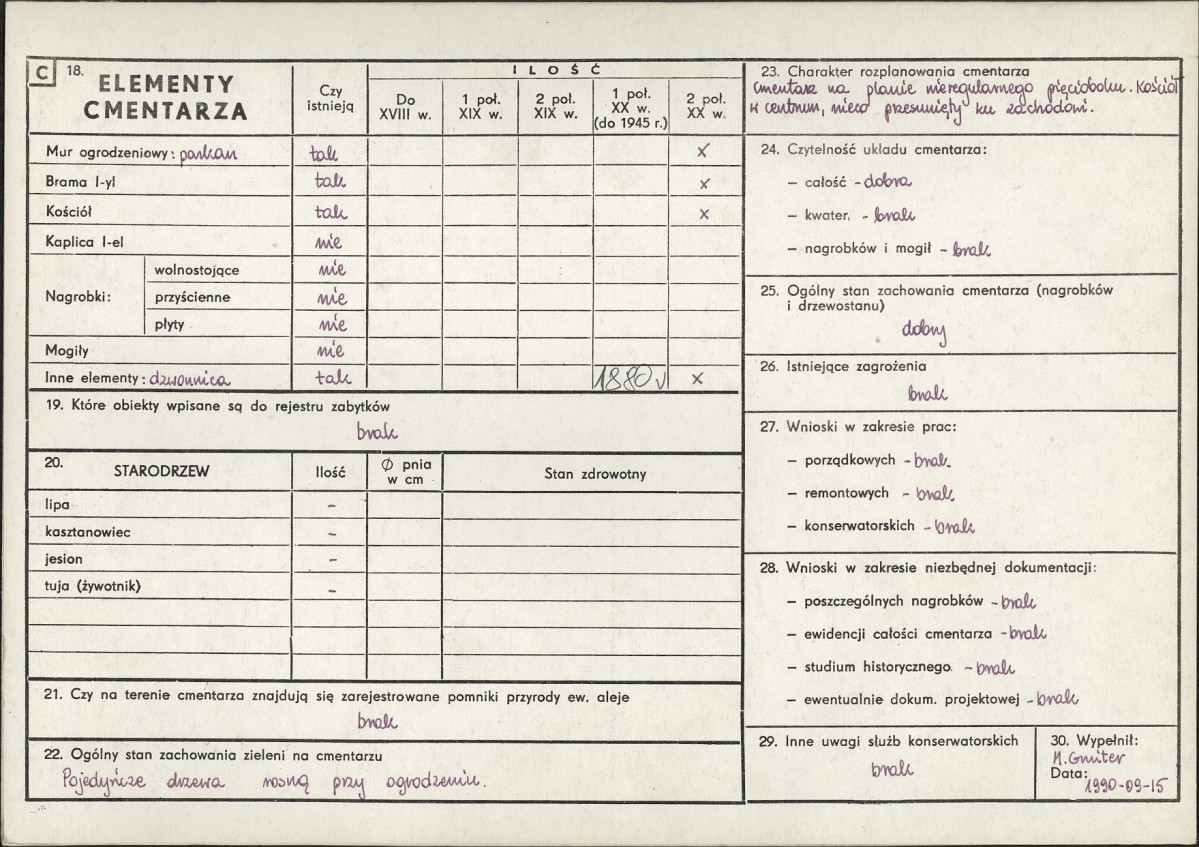 C 18. ELEMENTY CMENTARZA
Czy istnieją
ILOŚĆ
Do XVIII w.
1 poł. XIX w.
2 poł. XIX w.
1 poł. XX w. (do 1945 r.)
2 poł. XX w.
Mur ogrodzeniowy: parkan tak x
Brama l-yl tak x
Kościół tak x
Kaplica l-el nie
Nagrobki:
wolnostojące nie
przyścienne nie
płyty nie
Mogiły nie
Inne elementy: dzwonnica tak 1880 v x
19. Które obiekty wpisane są do rejestru zabytków
brak
20. STARODRZEW Ilość Ø pnia w cm Stan zdrowotny
lipa –
kasztanowiec –
jesion –
tuja (żywotnik) –
21. Czy na terenie cmentarza znajdują się zarejestrowane pomniki przyrody ew. aleje
brak
22. Ogólny stan zachowania zieleni na cmentarzu
Pojedyńcze drzewa rosną przy ogrodzeniu.
23. Charakter rozplanowania cmentarza
Cmentarz na planie nieregularnego pięcioboku. Kościół
w centrum, nieco przesunięty ku zachodowi.
24. Czytelność układu cmentarza:
– całość - dobra
– kwater. - brak
– nagrobków i mogił - brak
25. Ogólny stan zachowania cmentarza (nagrobków
i drzewostanu)
dobry
26. Istniejące zagrożenia
brak
27. Wnioski w zakresie prac:
– porządkowych - brak
– remontowych - brak
– konserwatorskich - brak
28. Wnioski w zakresie niezbędnej dokumentacji:
– poszczególnych nagrobków - brak
– ewidencji całości cmentarza - brak
– studium historycznego. - brak
– ewentualnie dokum. projektowej - brak
29. Inne uwagi służb konserwatorskich
brak
30. Wypełnił:
M. Gmiter
Data:
1990-09-15